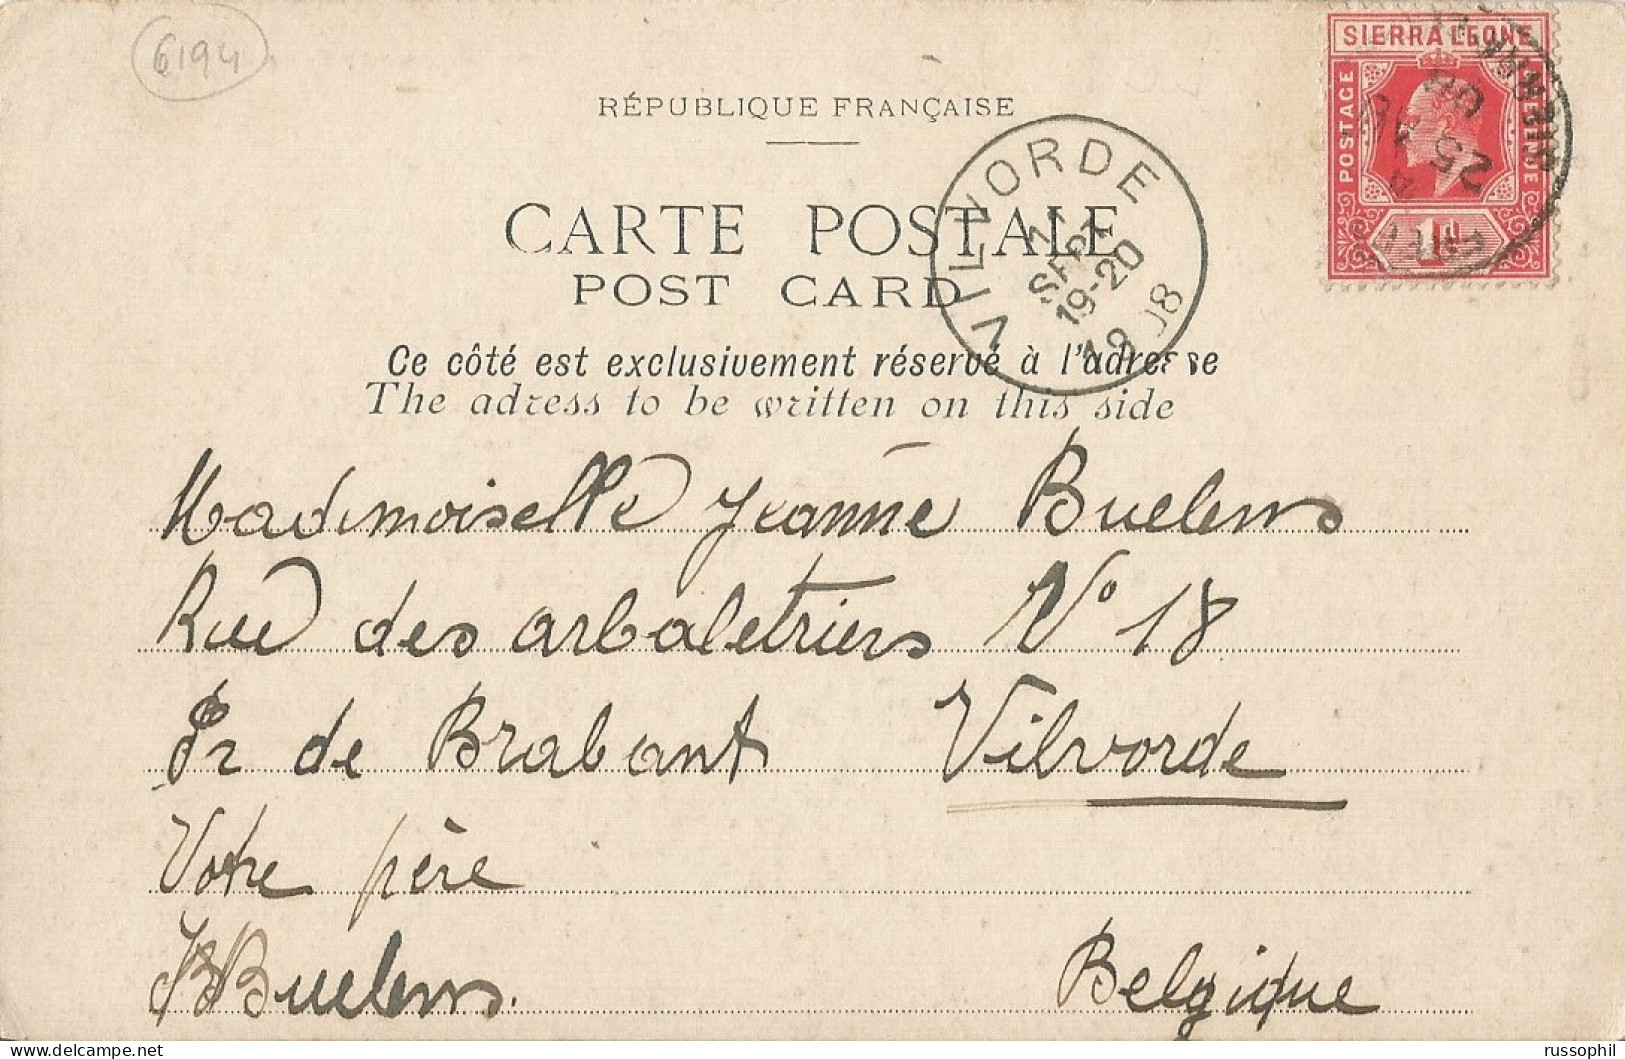 6194
SIERRA LEONE
POSTAGE
1d
RÉPUBLIQUE FRANÇAISE
VILVORDE
SEPT
19-20
CARTE POSTALE
POST CARD
Ce côté est exclusivement réservé à l'adresse
The adress to be written on this side
Mademoiselle Jeanne Buelens
Rue des arbaletriers N° 18
Pr de Brabant Vilvorde
Votre père
Buelens.
Belgique
russophil